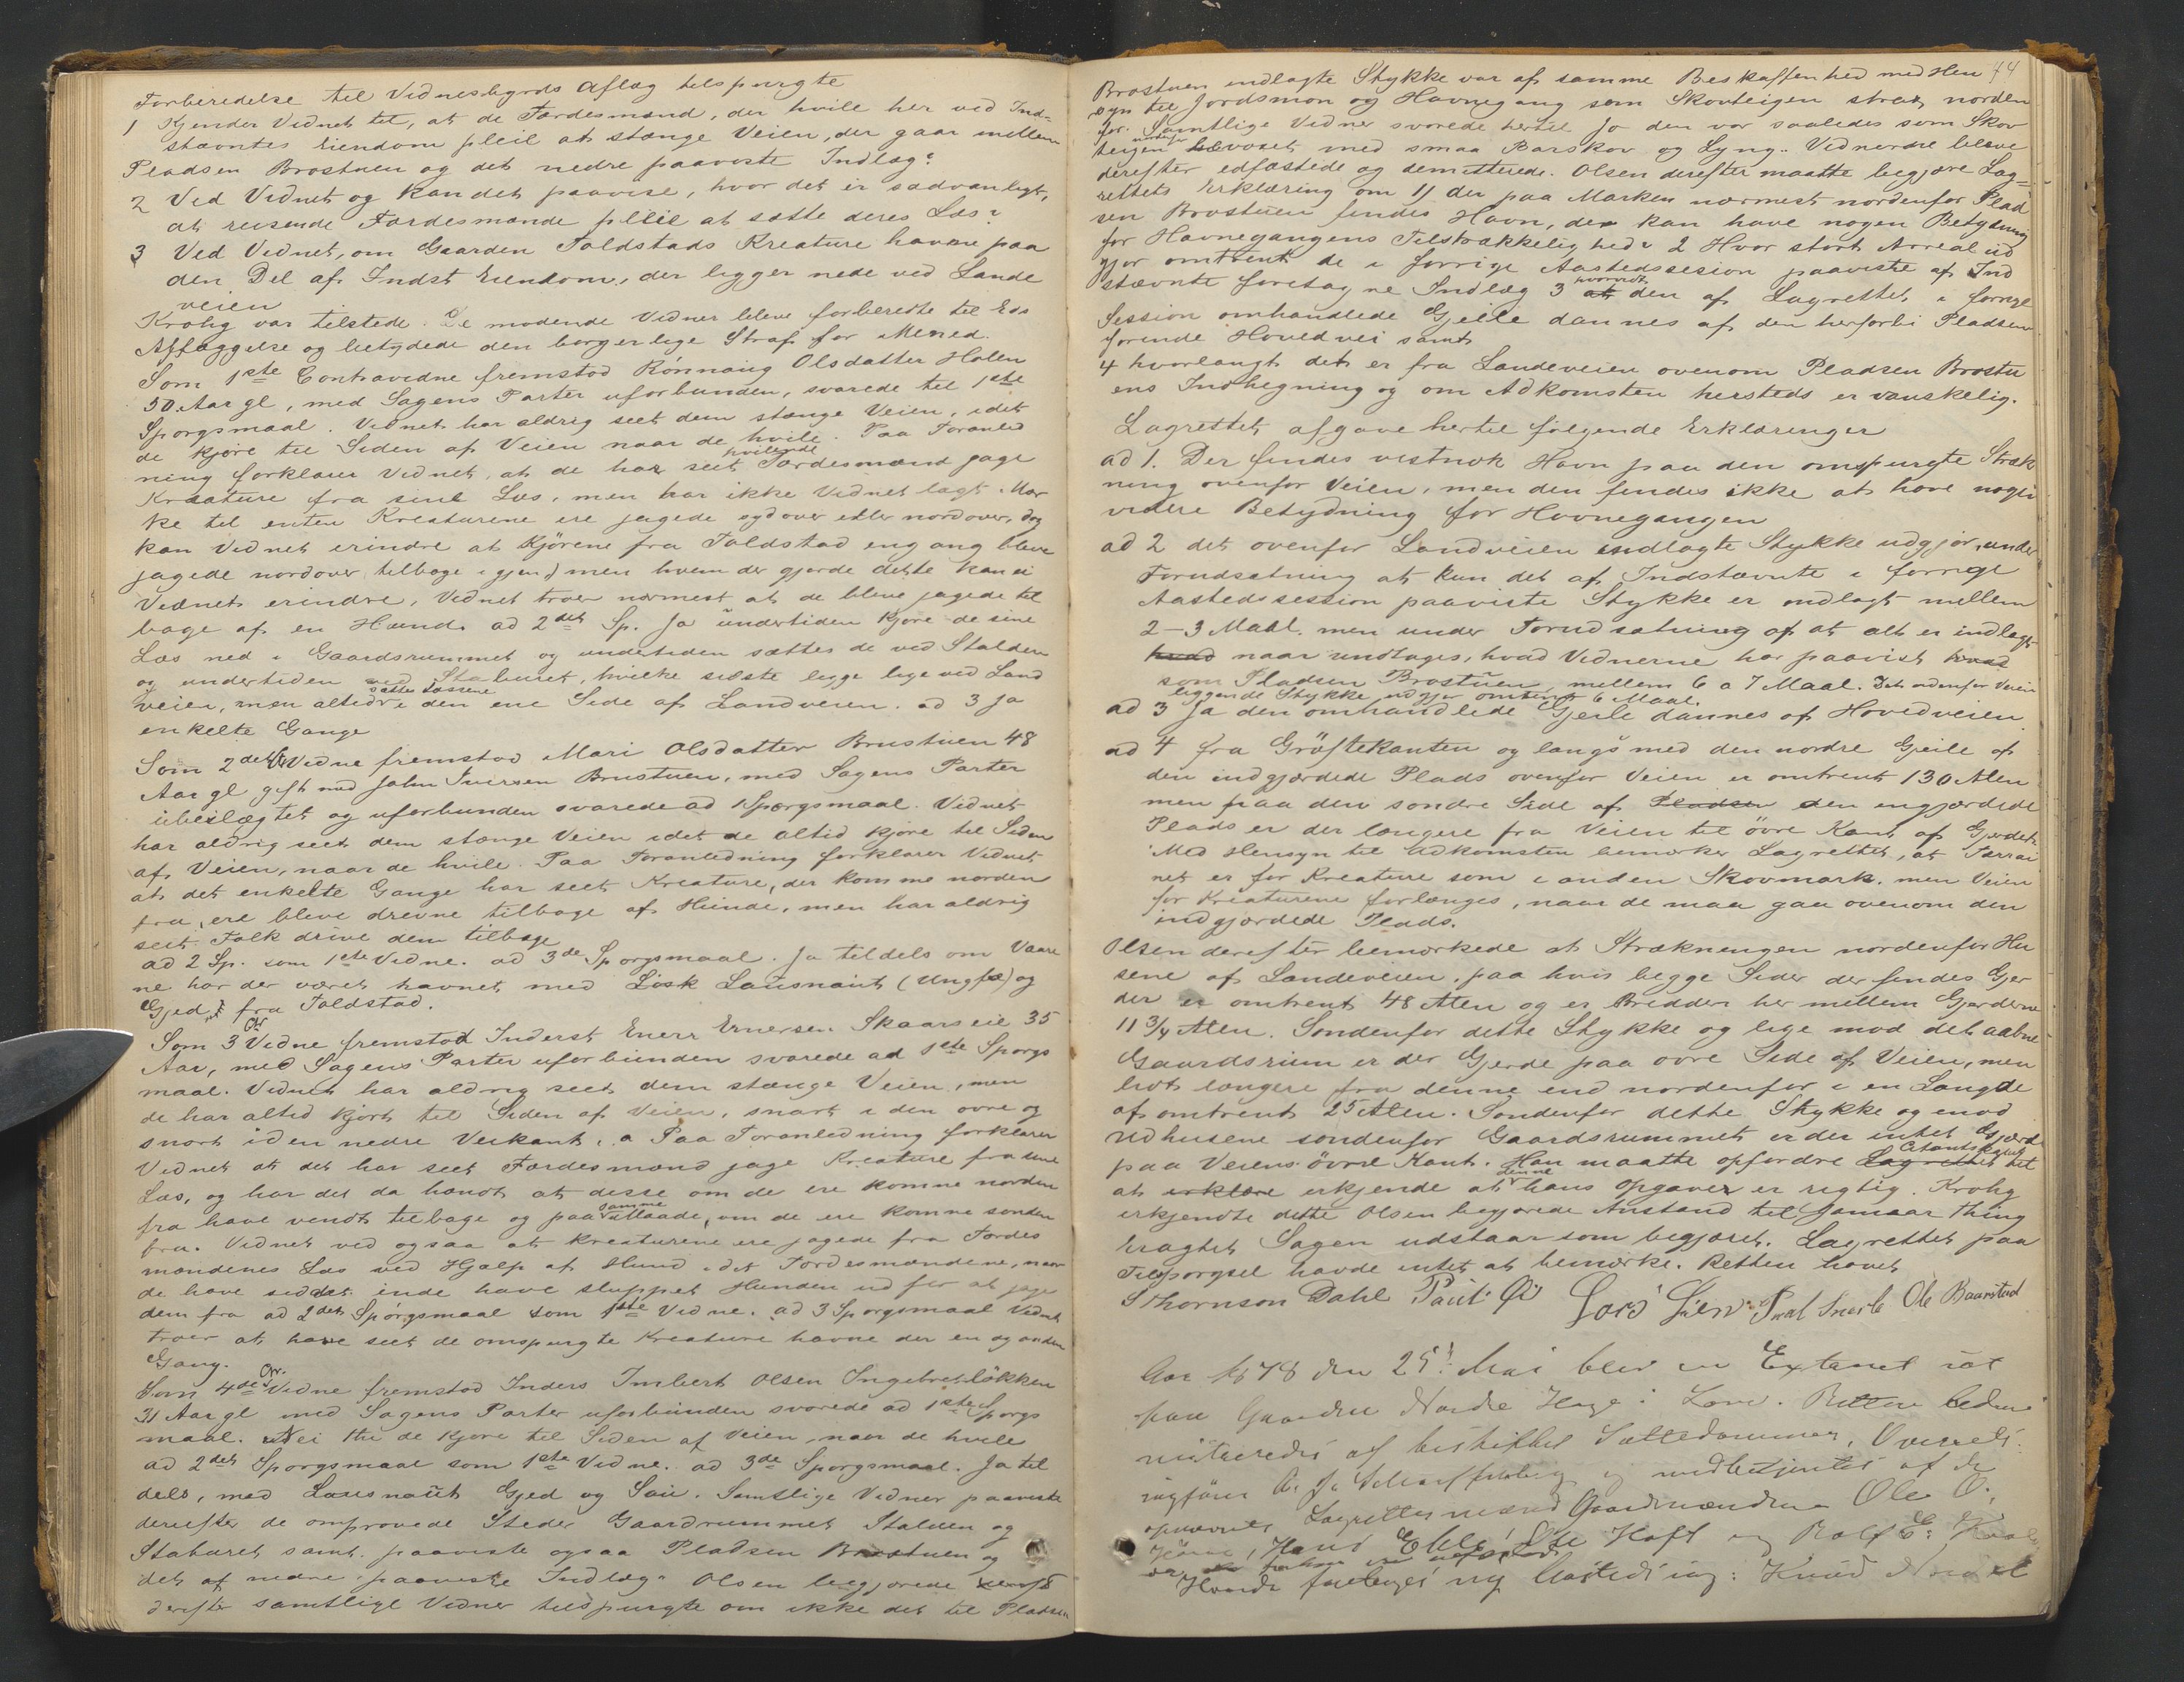 Forberedelse til Vidnesbyrds Aflæg tilspurgte
1 Kjender Vidnet til, at de Færdesmænd, der hvile her ved Ind-
stævntes Eiendom pleie at stænge Veien, der gaar mellem
Pladsen Brostuen og det nedre paaviste Indlæg?
2 Ved Vidnet og kan det paavise, hvor det er sædvanligt,
at reisende Færdesmænde pleie at sætte deres Læs?
3 Ved Vidnet, om Gaarden Toldstads Kreature havne paa
den Del af Indst Eiendom, der ligger nede ved Lande
veien
Krohg var tilstede. De mødende Vidner bleve forberedte til Eds
Aflæggelse og betydede den borgerlige Straf for Mened.
Som 1ste Contravidne fremstod Rönnaug Olsdatter Holen
50 Aar gl, med Sagens Parter uforbunden, svarede til 1ste
Spørgsmaal. Vidnet har aldrig seet dem stænge Veien, idet
de kjöre til Siden af Veien naar de hvile. Paa Foranled
ning forklarer Vidnet, at de har seet hvilende Færdesmænd jage
Kreature fra sine Læs, men har ikke Vidnet lagt Mær
ke til enten Kreaturene ere jagede sydover eller nordover, dog
kan Vidnet erindre at Kjörene fra Toldstad eng ang bleve
jagede nordover tilbage igjen) men hvem der gjorde dette kan ei
Vidnet erindre, Vidnet troer nærmest at de bleve jagede til
bage af en Hund. ad 2det Sp. Ja undertiden kjöre de sine
Læs ned i Gaardsrummet og undertiden sættes de ved Stalden
og undertiden ved Staburet, hvilke sidste ligge lige ved Land
veien, men altid sættes Læssene i den ene Side af Landveien. ad 3 Ja
enkelte Gange
Som 2det Vidne fremstod Mari Olsdatter Brustuen 48
Aar gl gift med John Iversen Brustuen, med Sagens Parter
ubeslægtet og uforbunden svarede ad 1 Spørgsmaal. Vidnet
har aldrig seet dem stænge Veien idet de altid kjöre til Siden
af Veien, naar de hvile. Paa Foranledning forklarer Vidnet
at det enkelte Gange har seet Kreature, der komme norden
fra, ere bleve drevne tilbage af Hunde, men har aldrig
seet Folk drive dem tilbage
ad 2 Sp. som 1ste Vidne. ad 3de Spørgsmaal. Ja tildels om Vaare
ne har der været havnet med Lösk Lausnaut (Ungfæ) og
Gjed fra Toldstad.
Som 3 Cr Vidne fremstod Inderst Enerr Enersen Skaarseie 35
Aar, med Sagens Parter uforbunden svarede ad 1ste Spörgs
maal. Vidnet har aldrig seet dem stænge Veien, men
de har altid kjört til Siden af Veien, snart i den övre og
snart i den nedre Veikant. a Paa Foranledning forklarer
Vidnet at det har seet Færdesmænd jage Kreature fra sine
Læs, og har det da hændt at disse om de ere komne norden
fra have vendt tilbage og paa samme Maade, om de ere komne sonden
fra. Vidnet ved ogsaa at Kreaturene ere jagede fra Færdes
mændenes Læs ved Hjælp af Hund idet Færdesmændene, naar
de have siddet inde have sluppet Hunden ud for at jage
dem fra ad 2det Spörgsmaal som 1ste Vidne. ad 3 Spörgsmaal Vidnet
troer at have seet de omspurgte Kreature havne der en og anden
Gang.
Som 4de Cr. Vidne fremstod Inders Imbert Olsen Ingebretlökken
31 Aar gl med Sagens Parter uforbunden svarede ad 1ste Spörgs
maal. Nei thi de kjöre til Siden af Veien, naar de hvile
ad 2det Spörgsmaal som 1ste Vidne. ad 3de Spörgsmaal. Ja til
dels, med Lausnaut Gjed og Sau. Samtlige Vidner paaviste
derefter de omprøvede Steder Gaardrummet Stalden og
Staburet samt paaviste ogsaa Pladsen Brostuen og
det af nedre paaviste Indlæg. Olsen begjærede
derefter samtlige Vidner tilspurgte om ikke det til Pladsen
44
Brostuen indlagte Stykke var af samme Beskaffenhed med Hen
syn til Jordsmon og Havnegang som Skovteigen strax norden
for. Samtlige Vidner svarede hertil Ja den var saaledes som Skov
teigen bevoxet med smaa Barskov og Lyng. Vidnerne bleve
derefter edfæstede og demitterede. Olsen derefter maatte begjære Lag-
rettets Erklæring om 1) der paa Marken nærmest nordenfor Plad
sen Brostuen findes Havn, der kan have nogen Betydning
for Havnegangens Tilstrækkelighed? 2 Hvor stort Areal ud
gjør omtrent de i forrige Aastedssesion paaviste af Ind
stævnte foretagne Indlæg 3 hvorvidt den af Lagrettet i forrige
Session omhandlede Gjeile dannes af den herforbi Pladsen
førende Hovedvei samt
4 hvorlangt det er fra Landeveien ovenom Pladsen Brostu
ens Indhegning og om Adkomsten hersteds er vanskelig.
Lagrettet afgave hertil følgende Erklæringer
ad 1. Der findes vistnok Havn paa den omspurgte Stræk
ning ovenfor Veien, men den findes ikke at have nogen
videre Betydning for Havnegangen
ad 2 det ovenfor Landveien indlagte Stykke udgjør, under
Forudsætning at kun det af Indstævnte i forrige
Aastedssession paaviste Stykke er indlagt mellem
2-3 Maal. men under Forudsætning af at alt er indlagt
hvad naar undtages, hvad Vidnerne har paavist hvad
som Pladsen Brostuen mellem 6 a 7 Maal. Det nedenfor Veien
liggende Stykke udgjør omtrent 6 Maal.
ad 3 Ja den omhandlede Gjeile dannes af Hovedveien
ad 4 fra Gröftekanten og langs med den nordre Gjeile af
den indgjærdede Plads ovenfor Veien er omtrent 130 Alen
men paa den söndre Side af Pladsen den engjærdede
Plads er der længere fra Veien til övre Kant af Gjærdet.
Med Hensyn til Adkomsten bemærker Lagrettet, at Tærrai
net er for Kreature som i anden Skovmark. men Veien
for Kreaturene forlænges, naar de maa gaa ovenom den
indgjærdede Plads.
Olsen derefter bemærkede at Strækningen nordenfor Hu
sene af Landeveien, paa hvis begge Sider der findes Gjer
der er omtrent 48 Alen og er Bredden her mellem Gjerderne
11 3/4 Alen. Søndenfor dette Stykke og lige mod det aabne
Gaardsrum er der Gjerde paa övre Side af Veien, men
lidt længere fra denne end nordenfor i en Længde
af omtrent 25 Alen. Søndenfor dette Stykke og mod
Udhusene søndenfor Gaardsrummet er der intet Gjærd
paa Veiens övre Kant. Han maatte opfordre Citantskabet til
at erklære erkjende at denne hans Opgaver er rigtig. Krohg
erkjendte dette Olsen begjærede Anstand til Januar Thing
bragtes Sagen udstaar som begjæret. Lagrettet paa
Tilspørgsel havde intet at bemærke. Retten hævet
S Thornson Dahl Paul Öi Lars Lien Paul Snerle Ole Baarstad
Aar 1878 den 25! Mai blev en Extraret sat
paa Gaarden Nordre Hage i Lom. Retten
administreredes af beskikket Sættedommer, Overrets
sagfører A. Ja og medbetjentes af de
opnævnte Lagrettesmænd Gaardmændene Ole O.
Hans Ekle, Ole Hoft og Rolf E.
Hvorda foretoges ny Aastedssag: Knud